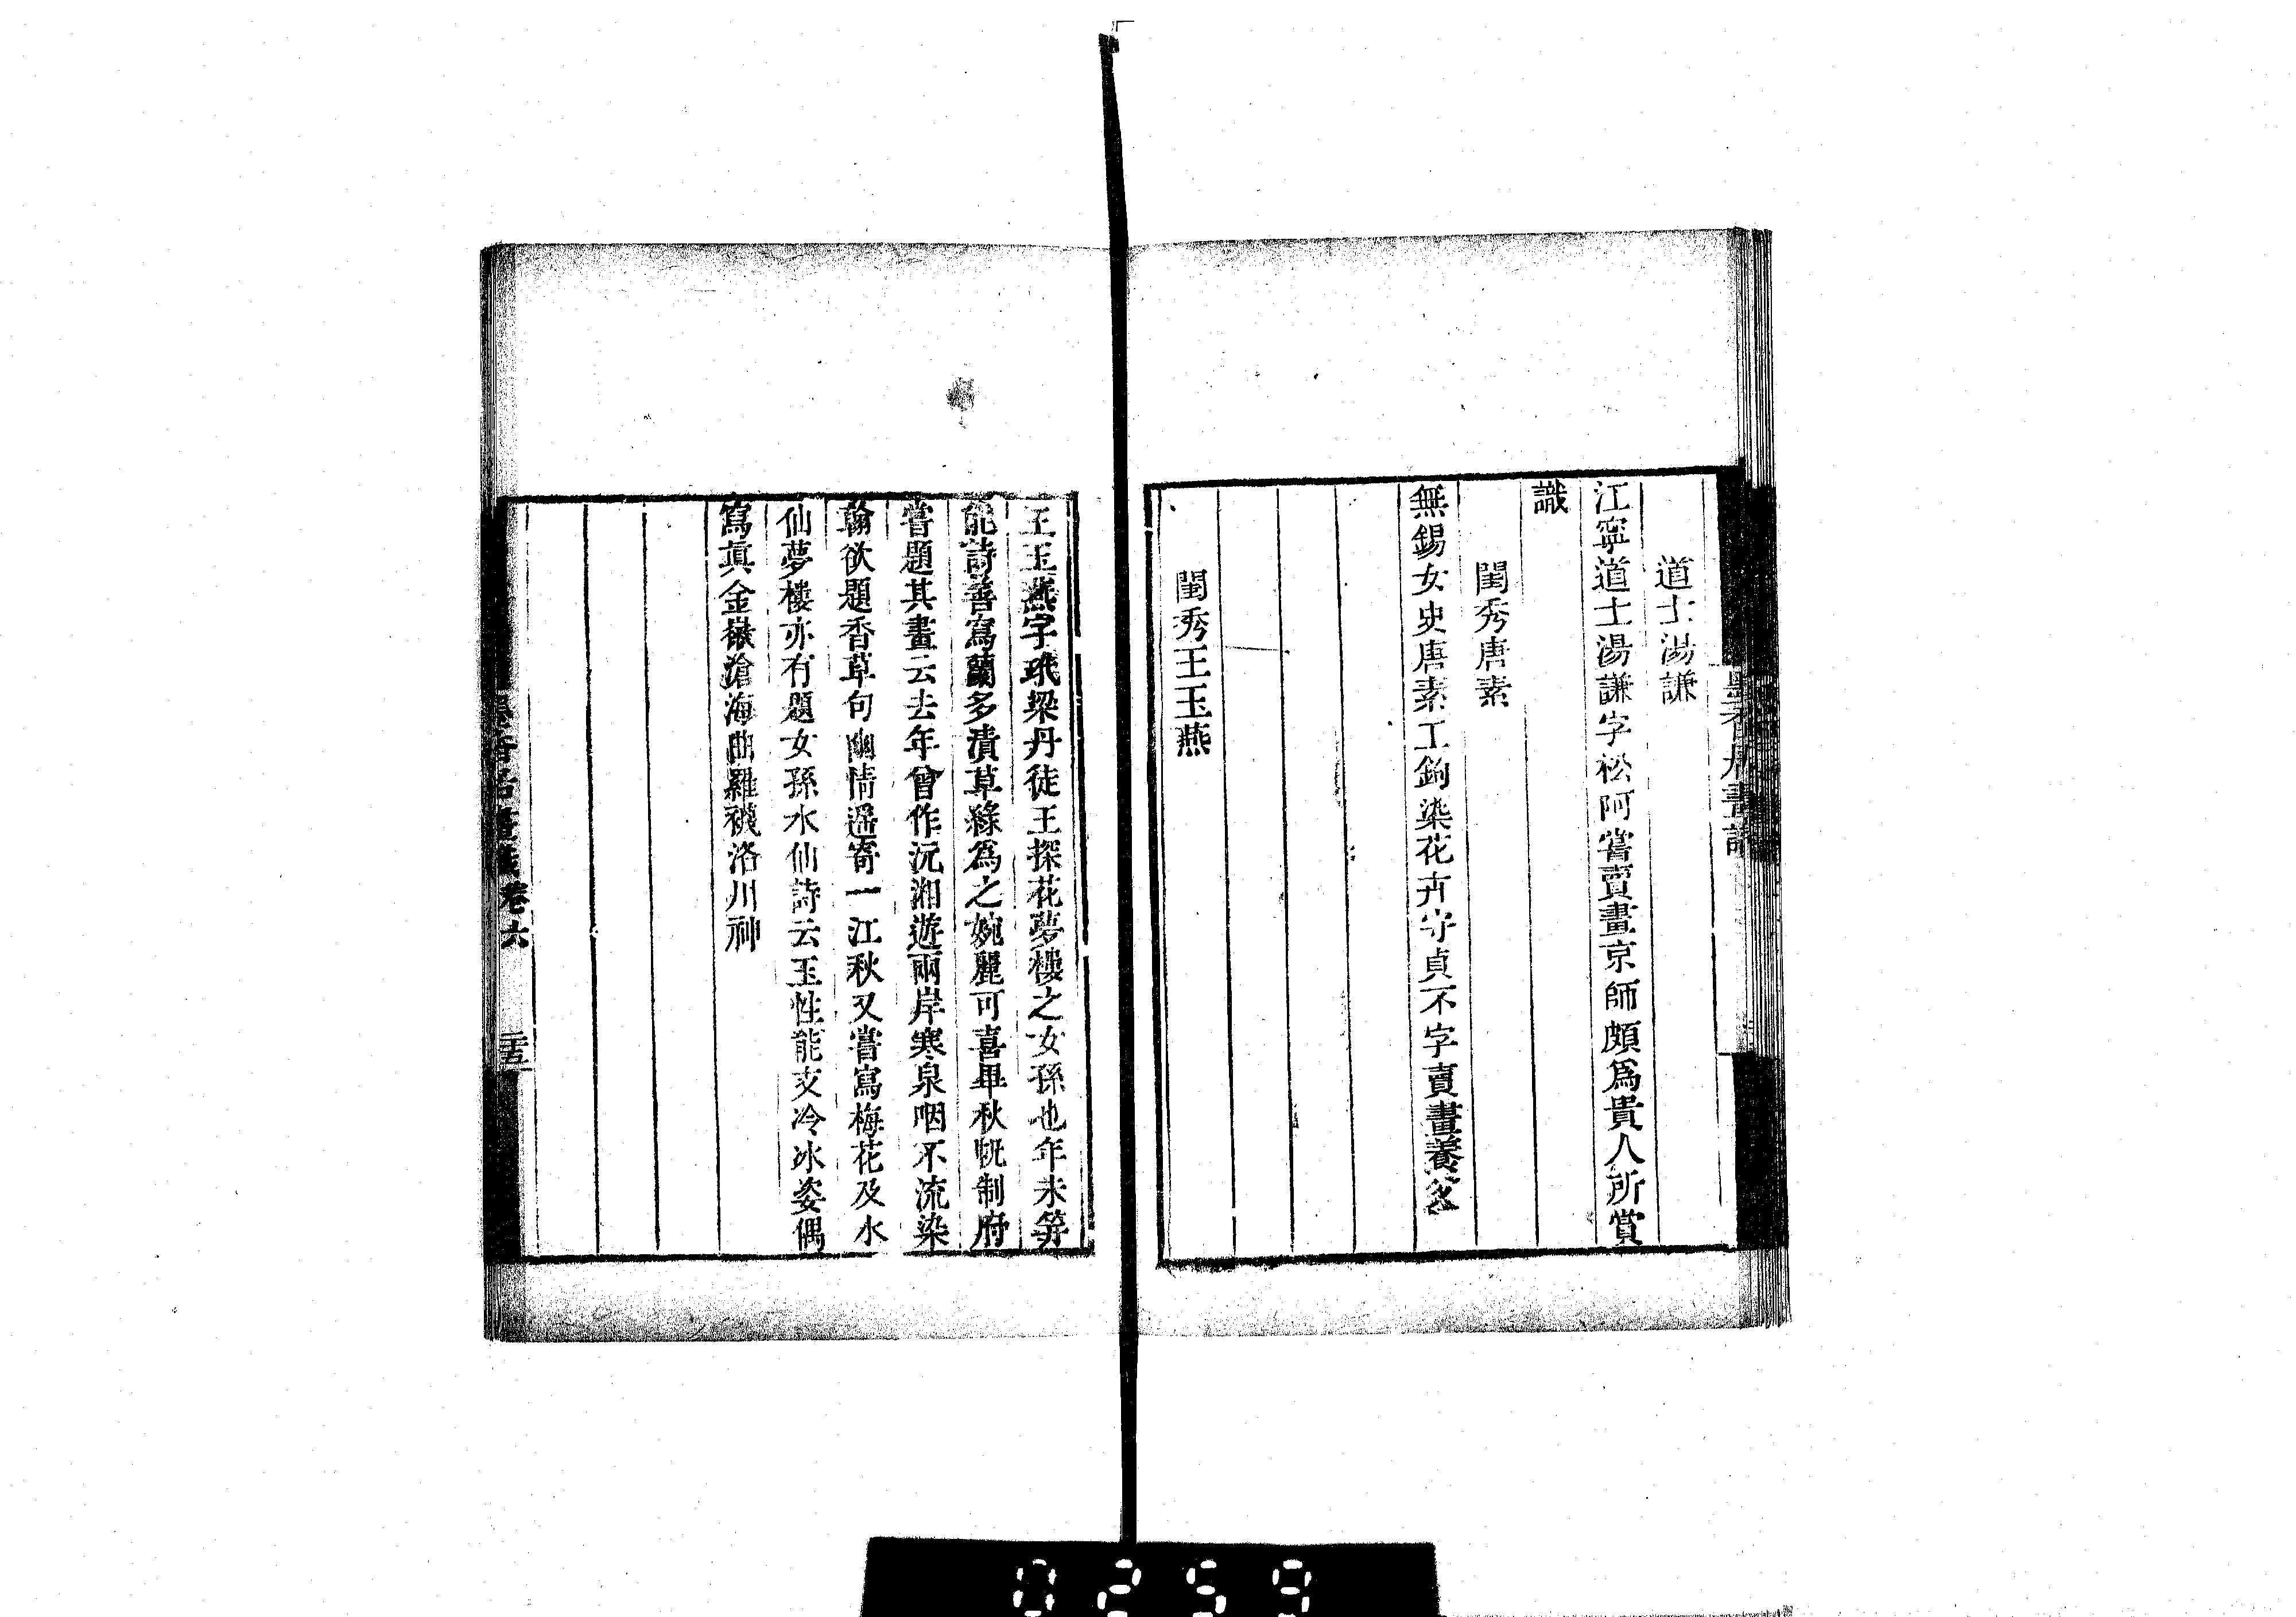 道士湯謙
江寧道士湯謙字松阿嘗賣畫京師頗爲貴人所賞
識
閨秀唐素
無錫女史唐素工鉤染花卉守貞不字賣畫養父
閨秀王玉燕
王玉燕字玳梁丹徒王探花夢樓之女孫也年未笄
能詩善寫蘭多漬草綠爲之婉麗可喜畢秋帆制府
嘗題其畫云去年曾作沅湘遊兩岸寒泉咽不流染
翰欲題香草句幽情遥寄一江秋又嘗寫梅花及水
仙夢樓亦有題女孫水仙詩云玉性能支冷冰姿偶
寫眞金徽滄海曲羅襪洛川神
卷六
二十五
0259